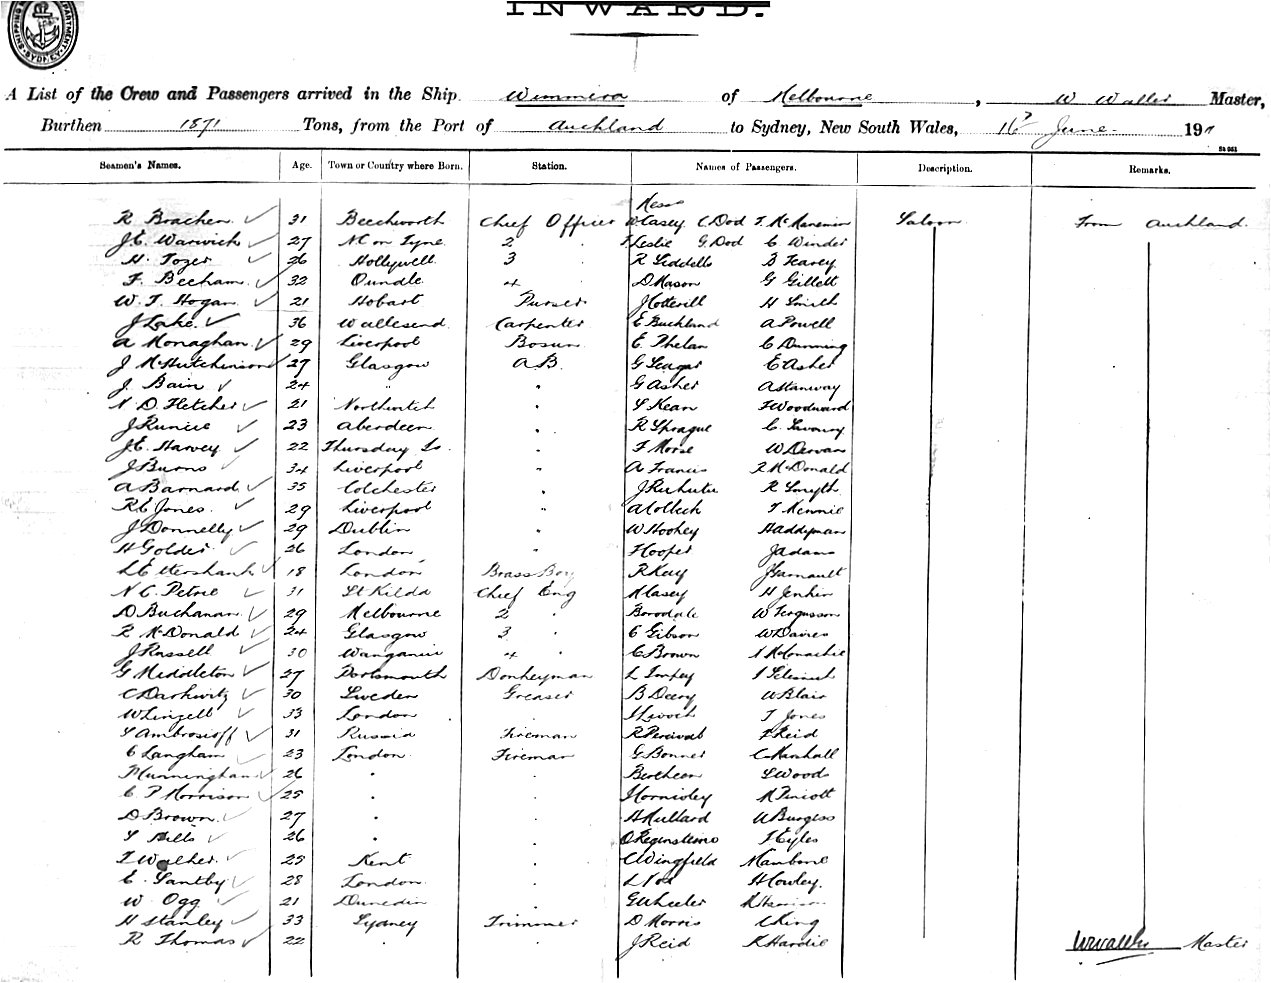 SHIPPING DEPARTMENT SYDNEY
INWARD.
A List of the Crew and Passengers arrived in the Ship Wimmera of Melbourne, W Waller Master,
Burthen 1871 Tons, from the Port of Auckland to Sydney, New South Wales, 16 June 191
Seamen's Names. Age. Town or Country where Born. Station. Names of Passengers. Description. Remarks.
Mess
R Brachen 31 Beechworth Chief Officer Casey C Dod Saloon From Auckland
J.E. Warwick 27 N C on Tyne 2 Leslie G Dod C Winder
H. Tozer 26 Hollywell 3 R Liddells B Fearey
F. Beecham 32 Oundle 4 D Mason G Gillett
W. T. Hogan 21 Hobart Purser J Cotterill H Smith
J Lake 36 Wallesend Carpenter E Buckland A Powell
A Monaghan 29 Liverpool Bosun E. Phelan C Dunning
J McHutchinson 27 Glasgow A.B. G Seagar E Asher
J. Bain 24 " " G Asher A Stanway
N D Fletcher 21 Northwich " S Kean F Woodward
J Runcie 23 Aberdeen " R Sprague C.
J.E. Harvey 22 Thursday Is. " F Morse W Dervan
J Burns 34 Liverpool " A Francis R McDonald
A Barnard 35 Colchester " R Smyth
R E Jones 29 Liverpool " A Colleck
J Donnelly 29 Dublin " W Hookey Haddyman
H Golder 26 London " Hooper J Adams
L Ettershank 18 London Brass Boy R Kay J Garnault
N C. Petrie 31 St Kilda Chief Eng M Casey H Jenkin
D Buchanan 29 Melbourne 2 " Borrodale W Fergusson
R McDonald 24 Glasgow 3 " C Gibson W Daires
J Russell 30 Wanganui 4 " C Brown McConachie
G Middleton 27 Portsmouth Donkeyman L Impey
C Darkwitz 30 Sweden Greaser B Deery W Blair
W Linzell 33 London " T Jones
S Ambrosioff 31 Russia Fireman R Percival F Reid
C Langham 23 London Fireman G Bonner C Marshall
Munningham 26 " " Berthean S Woods
C P Morrison 25 " " J Hornisley M Pincott
D Brown 27 " " H Mullard W Burgess
S Bills 26 " " O Regensteine J Eyles
T Walker 25 Kent " C Wingfield Manbone
E. Santby 28 London " L Fox H Cowley
W Ogg 21 Dunedin " G Wheeler Harrison
H Stanley 33 Sydney Trimmer D Morris C King
R Thomas 22 " " J Reid K Hardie W Waller Master